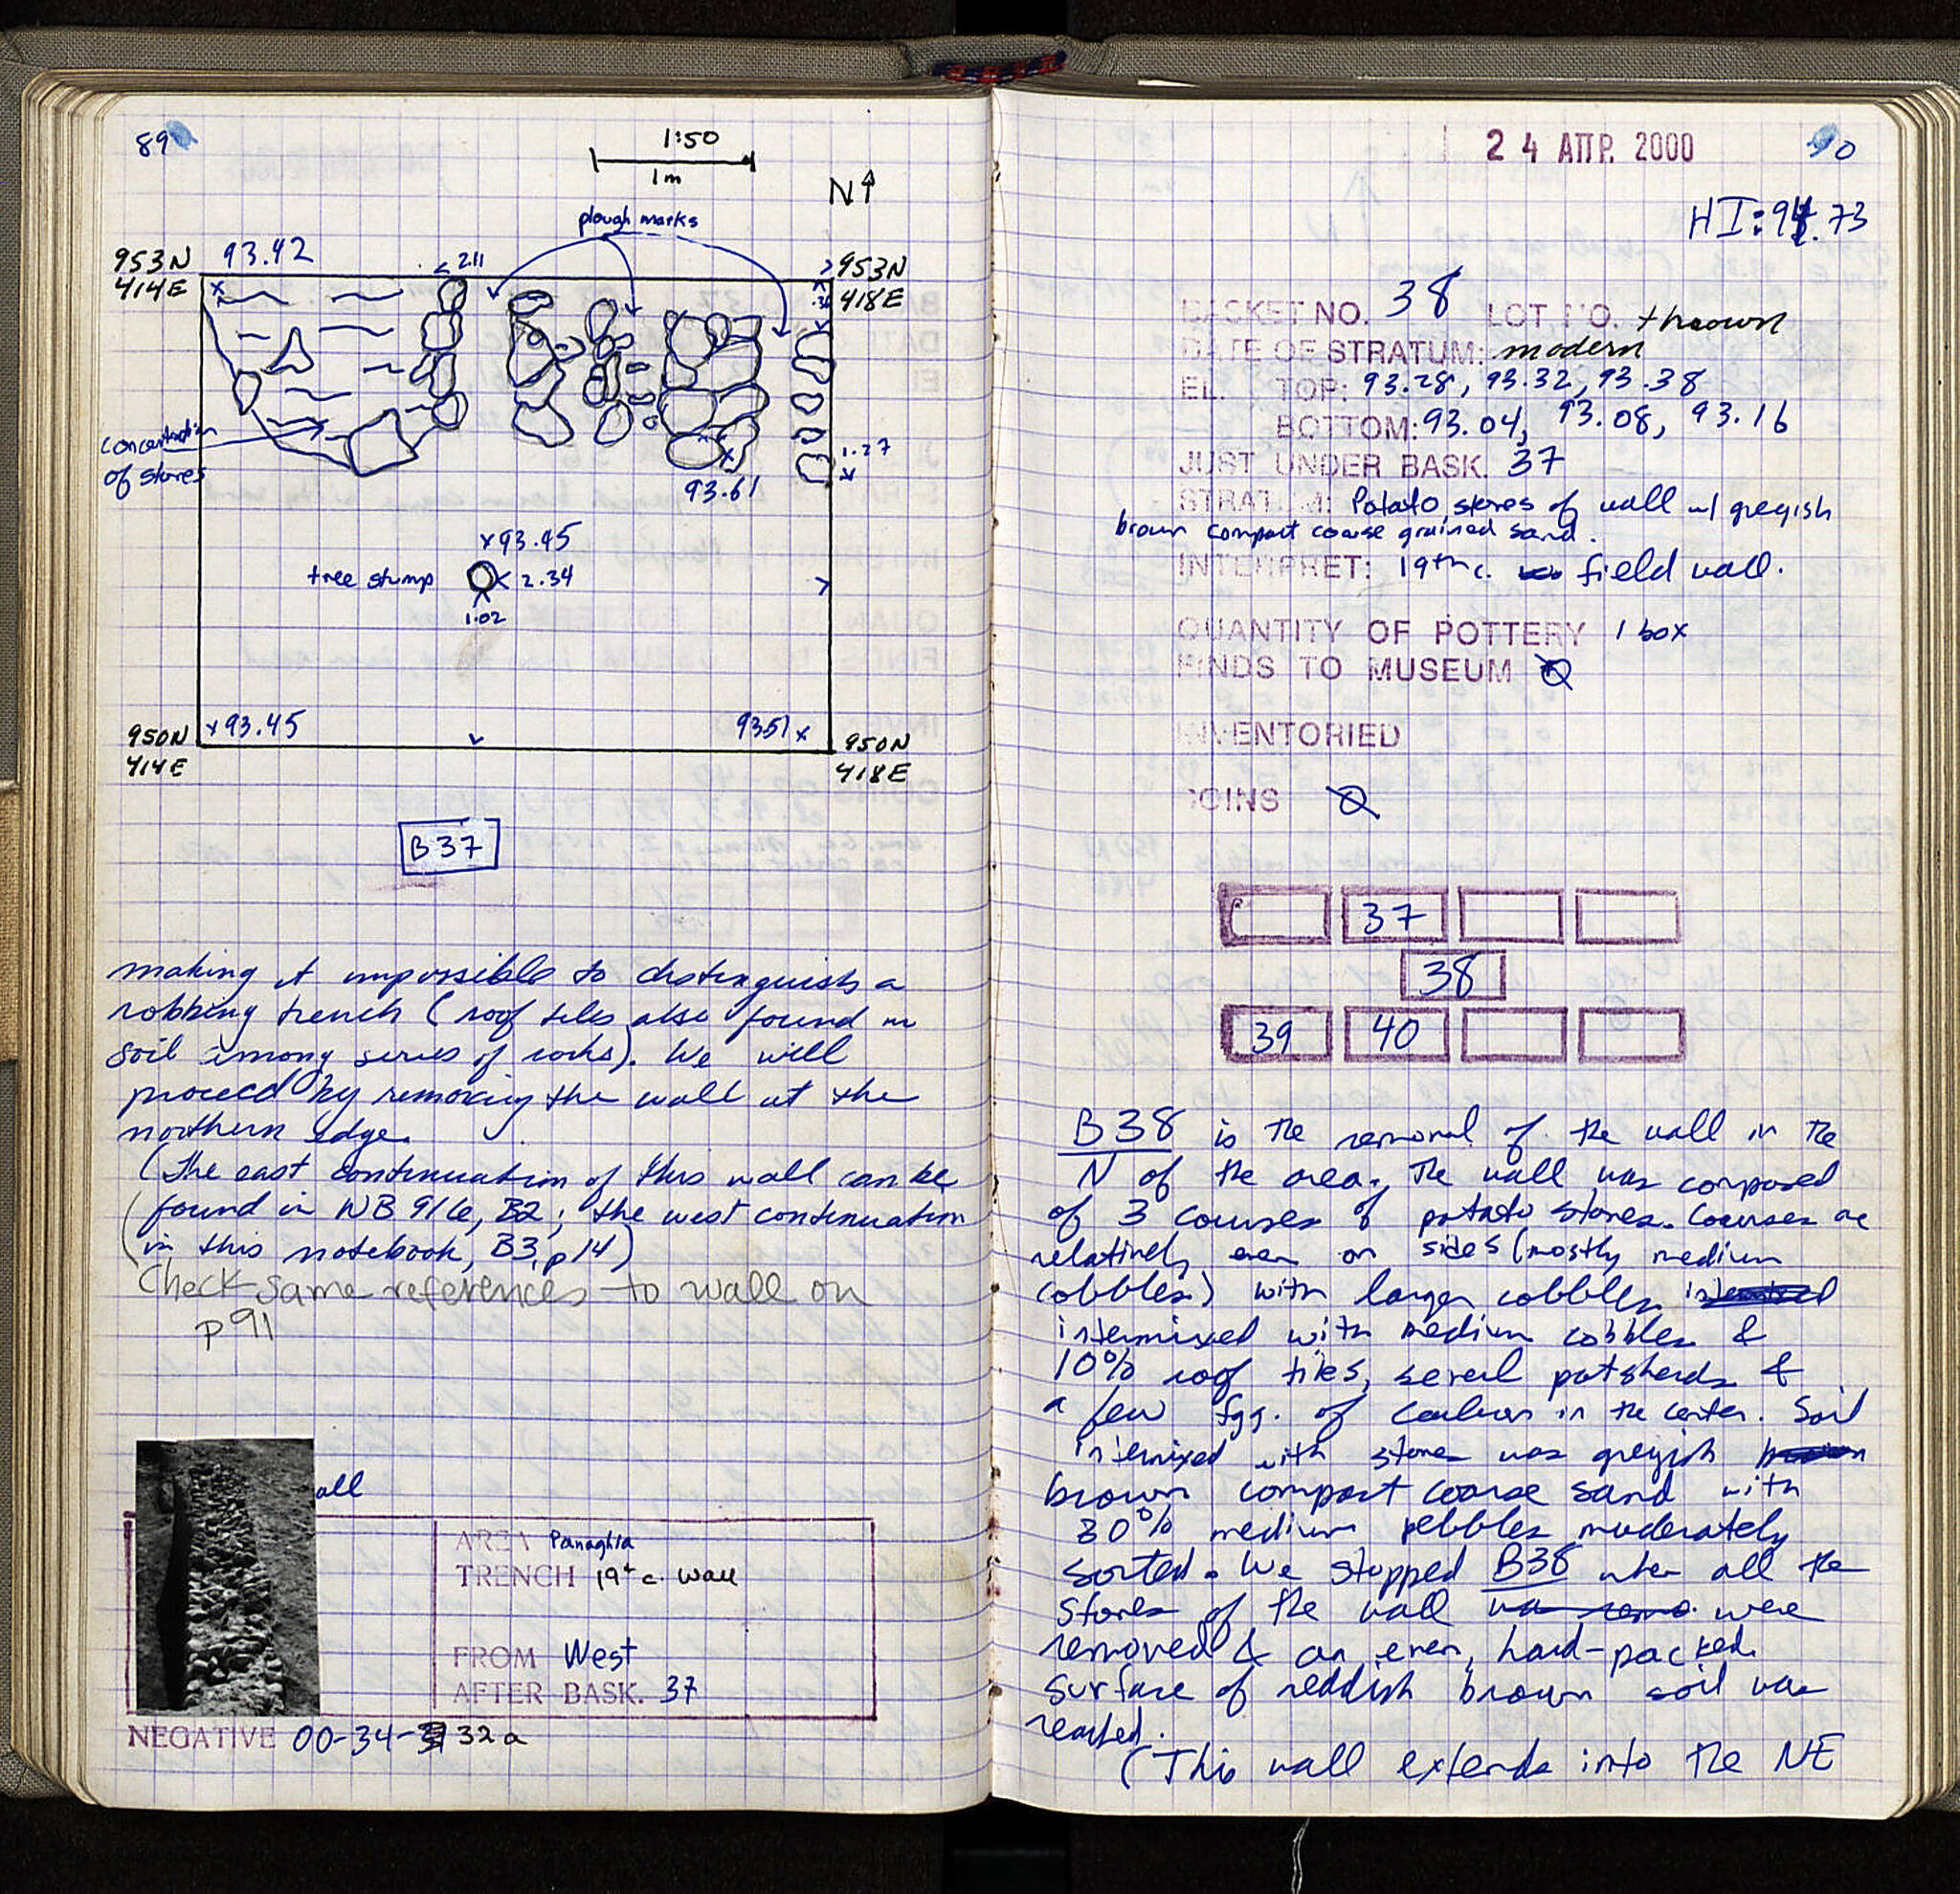 89
1:50
1m
N
plough marks
953N
414E
93.42
2.11
953N
418E
concentration
of stones
1.27
93.61
x93.45
tree stump
2.34
1.02
x93.45
9351 x
950N
414E
950N
418E
B37
making it impossible to distinguish a
robbing trench (roof tiles also found in
soil among series of rocks). We will
proceed by removing the wall at the
northern edge.
(The east continuation of this wall can be
found in NB 916, B2; the west continuation
in this notebook, B3, p14)
Check same references to wall on
p91
all
AREA Panaghia
TRENCH 19th c. wall
FROM West
AFTER BASK. 37
NEGATIVE 00-34-32a
24 ΑΠΡ. 2000
90
HI: 94.73
BASKET NO. 38 LOT NO. thrown
DATE OF STRATUM: modern
EL. TOP: 93.28, 93.32, 93.38
BOTTOM: 93.04, 93.08, 93.16
JUST UNDER BASK. 37
STRATUM: Potato stones of wall w/ greyish
brown compact coarse grained sand.
INTERPRET: 19th c. field wall.
QUANTITY OF POTTERY 1 box
FINDS TO MUSEUM Ø
INVENTORIED
COINS Ø
37
38
39 40
B38 is the removal of the wall in the
N of the area. The wall was composed
of 3 courses of potato stones. Courses are
relatively even on sides (mostly medium
cobbles) with larger cobbles
intermixed with medium cobbles &
10% roof tiles, several potsherds &
a few fgg. of in the center. Soil
intermixed with stones was greyish
brown compact coarse sand with
30% medium pebbles moderately
sorted. We stopped B38 when all the
stones of the wall were
removed & an even, hard-packed
surface of reddish brown soil was
reached.
(This wall extends into the NE